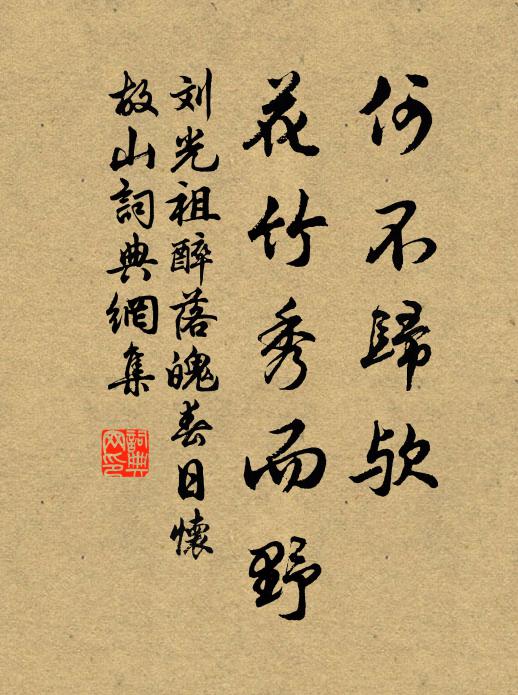 何不歸欤
花竹秀而野
刘光祖醉落魄春日懷
故山詞典網集
詞典網印